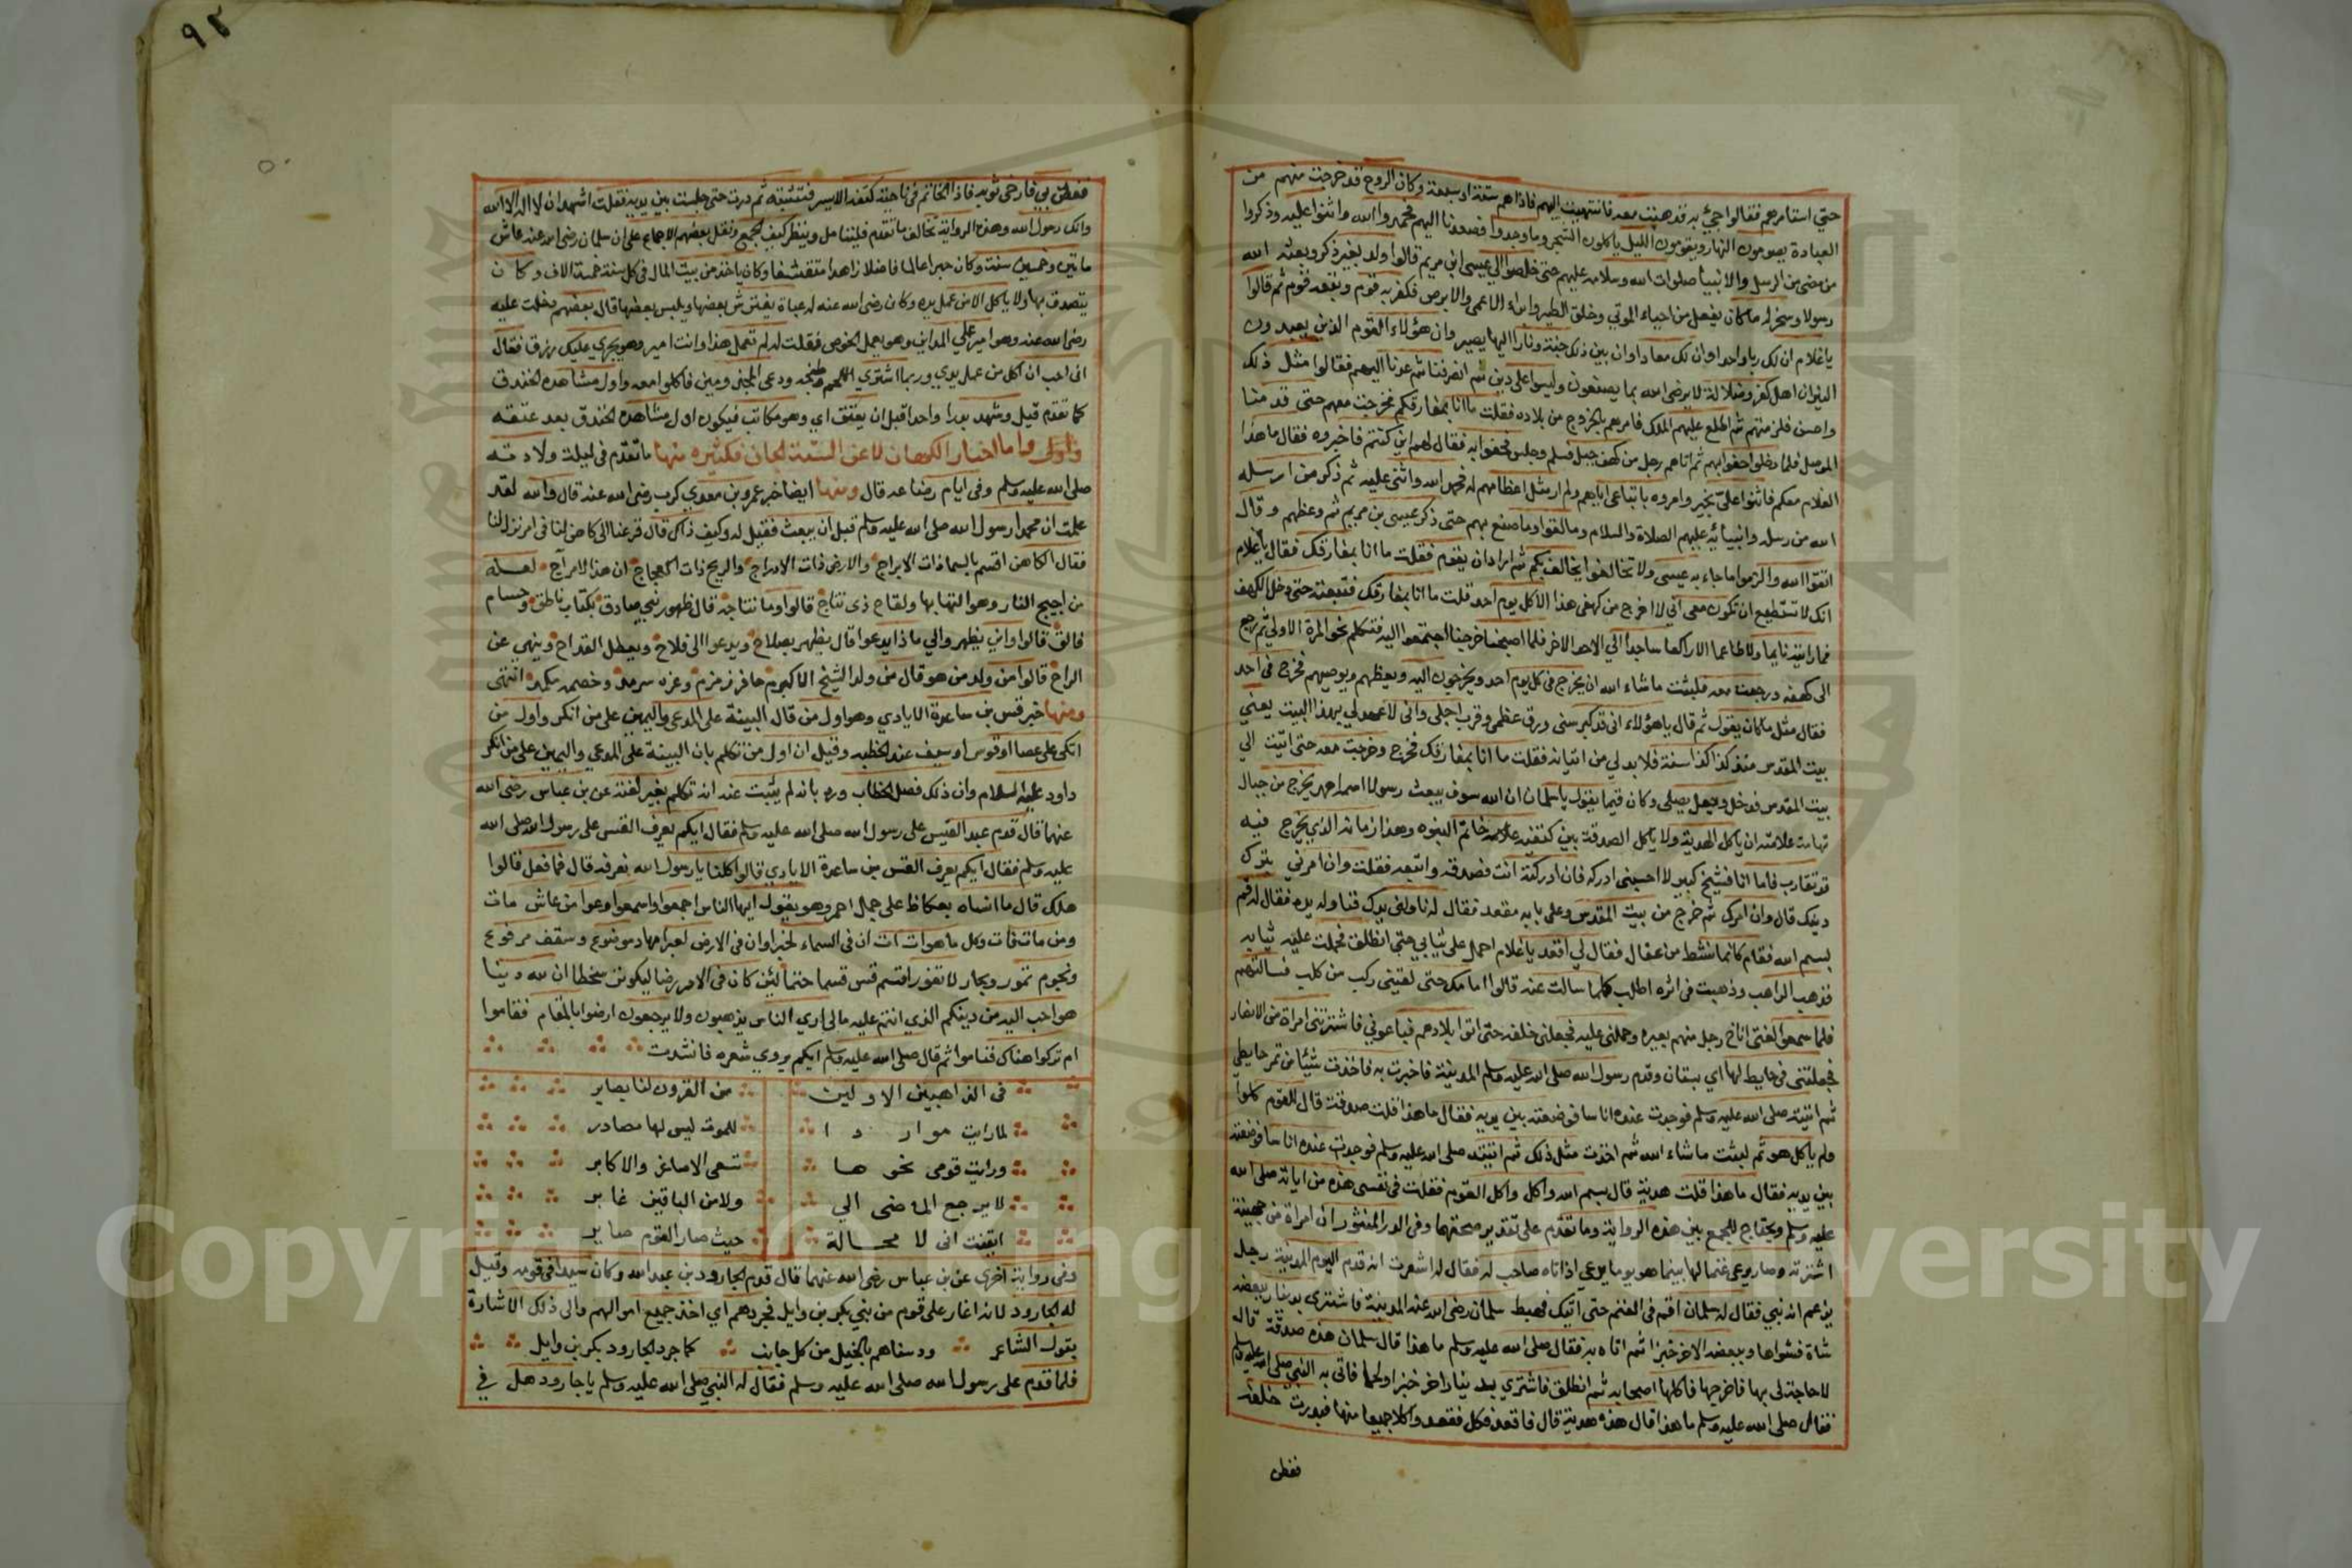 حتى استامرهم فقالوا جئ به فذهبت معه فانتهيت اليهم فاذا هم ستة او سبعة وكان الروح قد خرجت منهم من
العبادة يصومون النهار ويقومون الليل ياكلون الشجر وما وجدوا فصعدنا اليهم فحمدوا الله واثنوا عليه وذكروا
من مضى من الرسل والانبياء صلوات الله وسلامه عليهم حتى خلصوا الى عيسى ابن مريم قالوا ولد بغير ذكر وبعثه الله
رسولا وسخر له ما كان يفعل من احياء الموتى وخلق الطير وابراء الاعمى والابرص فكفر به قوم وتبعه قوم ثم قالوا
ياغلام ان لك ربا واحدا وان لك معادا وان بين ذلك جنة ونارا اليها يصير وان هؤلاء القوم الذين يعبدون
النيران اهل كفر وضلالة لا يرضى الله بما يصنعون وليسوا على دين ثم انصرفنا ثم عدنا اليهم فقالوا مثل ذلك
واحسن فلزمتهم ثم اطلع عليهم الملك فامرهم بالخروج من بلاده فقلت ما انا بمفارقكم فخرجت معهم حتى قدمنا
الموصل فلما دخلوا حفوا بهم ثم اتاهم رجل من كهف جبل فسلم وجلس فحفوا به فقال لهم اين كنتم فاخبروه فقال ما هذا
الغلام معكم فاثنوا علىّ بخير وامروه باتباعي اياهم ولم ار مثل اعظامهم له فحمد الله واثنى عليه ثم ذكر من ارسله
الله من رسله وانبيائه عليهم الصلاة والسلام وما لقوا وما صنع بهم حتى ذكر عيسى بن مريم ثم وعظهم وقال
اتقوا الله والزموا ما جاء به عيسى ولا تخالفوا يخالف بكم ثم اراد ان يقوم فقلت ما انا بمفارقك فقال ياغلام
انك لا تستطيع ان تكون معى انى لا اخرج من كهفى هذا الا كل يوم احد قلت ما انا بمفارقك فتبعته حتى دخل الكهف
فما رايته نايما ولا طاعما الا راكعا ساجدا الى الاحد الاخر فلما اصبحنا خرجنا اجتمعوا اليه فتكلم نحو المرة الاولى ثم رجع
الى كهفه ورجعت معه فلبثت ما شاء الله ان يخرج فى كل يوم احد ويخرجون اليه ويعظهم ويوصيهم فخرج فى احد
فقال مثل ما كان يقول ثم قال ياهؤلاء انى قد كبر سنى ورق عظمى وقرب اجلى وانى لا عهد لي بهذا البيت يعنى
بيت المقدس منذ كذا كذا سنة فلا بد لي من اتيانه فقلت ما انا بمفارقك فخرج وخرجت معه حتى اتيت الى
بيت المقدس فدخل وجعل يصلى وكان فيما يقول ياسلمان ان الله سوف يبعث رسولا اسمه احمد يخرج من جبال
تهامة علامته ان ياكل الهدية ولا ياكل الصدقة بين كتفيه علامة خاتم النبوه وهذا زمانه الذي يخرج فيه
قد تقارب فاما انا فشيخ كبير لا احسبنى ادركه فان ادركته انت فصدقه واتبعه فقلت وان امرنى بترك
دينك قال وان امرك ثم خرج من بيت المقدس وعلى بابه مقعد فقال له ناولنى يدك فناوله يده فقال له قم
بسم الله فقام كانما نشط من عقال فقال لي المقعد ياغلام احمل على ثيابي حتى انطلق فحملت عليه ثيابه
فذهب الراهب وذهبت فى اثره اطلبه كلما سالت عنه قالوا امامك حتى لقينى ركب من كلب فسالتهم
فلما سمعوا لغتى اناخ رجل منهم بعيره وحملنى عليه فجعلنى خلفه حتى اتوا بلادهم فباعونى فاشترتنى امراة من الانصار
فجعلتنى فى حايط لها اي بستان وقدم رسول الله صلى الله عليه وسلم المدينة فاخبرت به فاخذت شيئا من تمر حايطي
ثم اتيته صلى الله عليه وسلم فوجدت عنده اناسا فوضعته بين يديه فقال ما هذا قلت صدقة قال للقوم كلوا
ولم ياكل هو ثم لبثت ما شاء الله ثم اخذت مثل ذلك ثم اتيته صلى الله عليه وسلم فوجدت عنده اناسا فوضعته
بين يديه فقال ما هذا قلت هدية قال بسم الله واكل واكل القوم فقلت فى نفسى هذه من اياته صلى الله
عليه وسلم ويحتاج للجمع بين هذه الرواية وما تقدم على تقدير صحتهما وفى الدر المنثور ان امراة من جهينة
اشترته وصار يرعى غنما لها بينما هو يوما يرعى اذ اتاه صاحب له فقال له اشعرت انه قدم اليوم المدينة رجل
يزعم انه نبي فقال له سلمان اقم فى الغنم حتى آتيك فهبط سلمان رضى الله عنه المدينة فاشترى بدينار ببعضه
شاة فشواها وببعضه الاخر خبزا ثم اتاه به فقال صلى الله عليه وسلم ما هذا قال سلمان هذه صدقة قال
لا حاجة لى بها فاخرجها فاكلها اصحابه ثم انطلق فاشترى بدينار اخر خبزا ولحما فاتى به النبى صلى الله عليه وسلم
فقال صلى الله عليه وسلم ما هذا قال هذه هدية قال فاقعد فكل فقعد واكلا جميعا منها فدرت خلفه
ففطن
٩٢
ففطن بي فارخى ثوبه فاذا الخاتم فى ناحية كتفه الايسر فتبينته ثم درت حتى جلست بين يديه فقلت اشهد ان لا اله الا الله
وانك رسول الله وهذه الرواية تخالف ما تقدم فليتامل وينظر كيف الجمع ونقل بعضهم الاجماع على ان سلمان رضى الله عنه عاش
مايتين وخمسين سنة وكان حبرا عالما فاضلا زاهدا متقشفا وكان ياخذ من بيت المال فى كل سنة خمسة الاف وكان
يتصدق بها ولا ياكل الا من عمل يده وكان رضى الله عنه له عباة يفترش بعضها ويلبس بعضها قال بعضهم دخلت عليه
رضى الله عنه وهو امير على المداين وهو يعمل الخوص فقلت له لم تعمل هذا وانت امير وهو يجري عليك رزق فقال
انى احب ان اكل من عمل يدي وربما اشترى اللحم وطبخه ودعى المجذومين فاكلوا معه واول مشاهده الخندق
كما تقدم قيل وشهد بدرا واحدا قبل ان يعتق اي وهو مكاتب فيكون اول مشاهده الخندق بعد عتقه
واما اخبار الكهان لا عن السنة الجان فكثيره منها ما تقدم فى ليلة ولادته
صلى الله عليه وسلم وفى ايام رضاعه قال ومنها ايضا خبر عمرو بن معدي كرب رضى الله عنه قال والله لقد
علمت ان محمدا رسول الله صلى الله عليه وسلم قبل ان يبعث فقيل له وكيف ذاك قال فزعنا الى كاهن لنا فى امر نزل لنا
فقال الكاهن اقسم بالسماء ذات الابراج والارض ذات الادراج والريح ذات العجاج ان هذا لامراج لعله
من اجيج النار وهو التهابها ولقاح ذى نتاج قالوا وما نتاجه قال ظهور نبي صادق بكتاب ناطق وحسام
فالق قالوا واين يظهر والي ماذا يدعوا قال يظهر بصلاح ويدعوا الى فلاح ويعطل القداح وينهى عن
الراح قالوا من ولد من هو قال من ولد الشيخ الاكبر حافر زمزم وعزه سرمد وخصمه مكمد انتهى
ومنها خبر قس بن ساعدة الايادي وهو اول من قال البينة على المدعى واليمين على من انكر واول من
اتكى على عصا او قوس او سيف عند الخطبه وقيل ان اول من تكلم بان البينة على المدعي واليمين على من انكر
داود عليه السلام وان ذلك فصل الخطاب ورد بانه لم يثبت عنه انه تكلم بغير لغته عن بن عباس رضى الله
عنهما قال قدم عبد القيس على رسول الله صلى الله عليه وسلم فقال ايكم يعرف القس على رسول الله صلى الله
عليه وسلم فقال ايكم يعرف القس بن ساعدة الايادي قالوا كلنا يارسول الله نعرفه قال فما فعل قالوا
هلك قال ما انساه بعكاظ على جمل احمر وهو يقول ايها الناس اجمعوا واسمعوا وعوا من عاش مات
ومن مات فات وكل ما هو ات ات ان فى السماء لخبرا وان فى الارض لعبرا مهاد موضوع وسقف مرفوع
ونجوم تمور وبحار لا تغور اقسم قس قسما حتما لئن كان فى الامر رضا ليكونن سخطا ان لله دينا
هو احب اليه من دينكم الذي انتم عليه مالى ارى الناس يذهبون ولا يرجعون ارضوا بالمقام فقاموا
ام تركوا هناك فناموا ثم قال صلى الله عليه وسلم ايكم يروي شعره فانشدت
فى الذاهبين الاولين من القرون لنا بصاير
لما رايت مواردا للموت ليس لها مصادر
ورايت قومى نحوها تسعى الاصاغر والاكابر
لا يرجع الماضى الي ولا من الباقين غابر
ايقنت انى لا محالة حيث صار القوم صاير
وفى رواية اخرى عن بن عباس رضى الله عنهما قال قدم الجارود بن عبد الله وكان سيدا فى قومه وقيل
له الجارود لانه اغار على قوم من بني بكر بن وايل فجردهم اي اخذ جميع اموالهم والى ذلك الاشارة
بقول الشاعر ودسناهم بالخيل من كل جانب كما جرد الجارود بكر بن وايل
فلما قدم على رسول الله صلى الله عليه وسلم فقال له النبي صلى الله عليه وسلم ياجارود هل في
Copyright © King Saud University